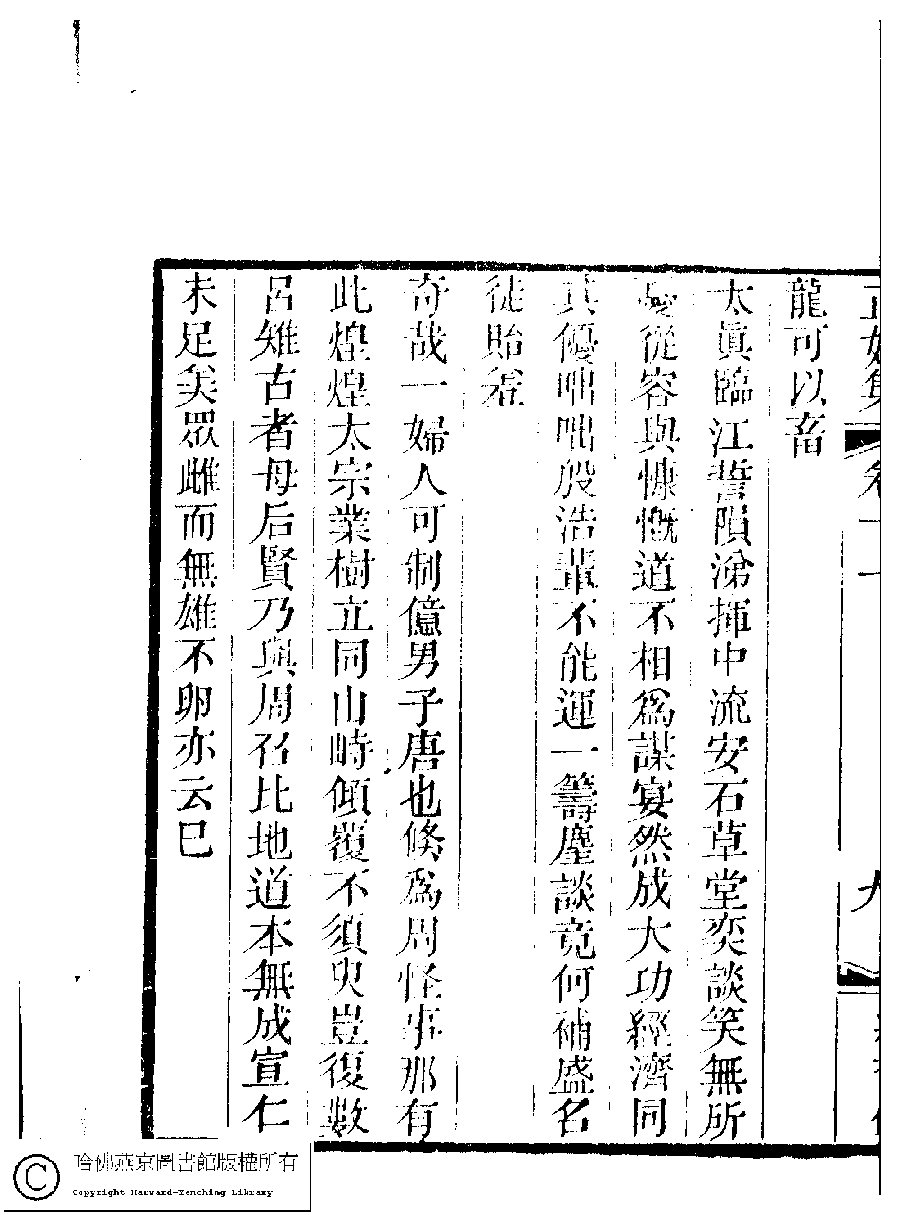 龍可以畜
太眞臨江誓隕涕揮中流安石草堂奕談笑無所
憂從容與慷慨道不相爲謀宴然成大功經濟同
其優咄咄殷浩輩不能運一籌麈談竟何補盛名
徒貽羞
奇哉一婦人可制億男子唐也倐爲周怪事那有
此煌煌太宗業樹立同山峙傾覆不須臾豈復數
呂雉古者母后賢乃與周召比地道本無成宣仁
未足矣眾雌而無雄不卵亦云已
哈佛燕京圖書館版權所有
Copyright Harvard-Yenching Library